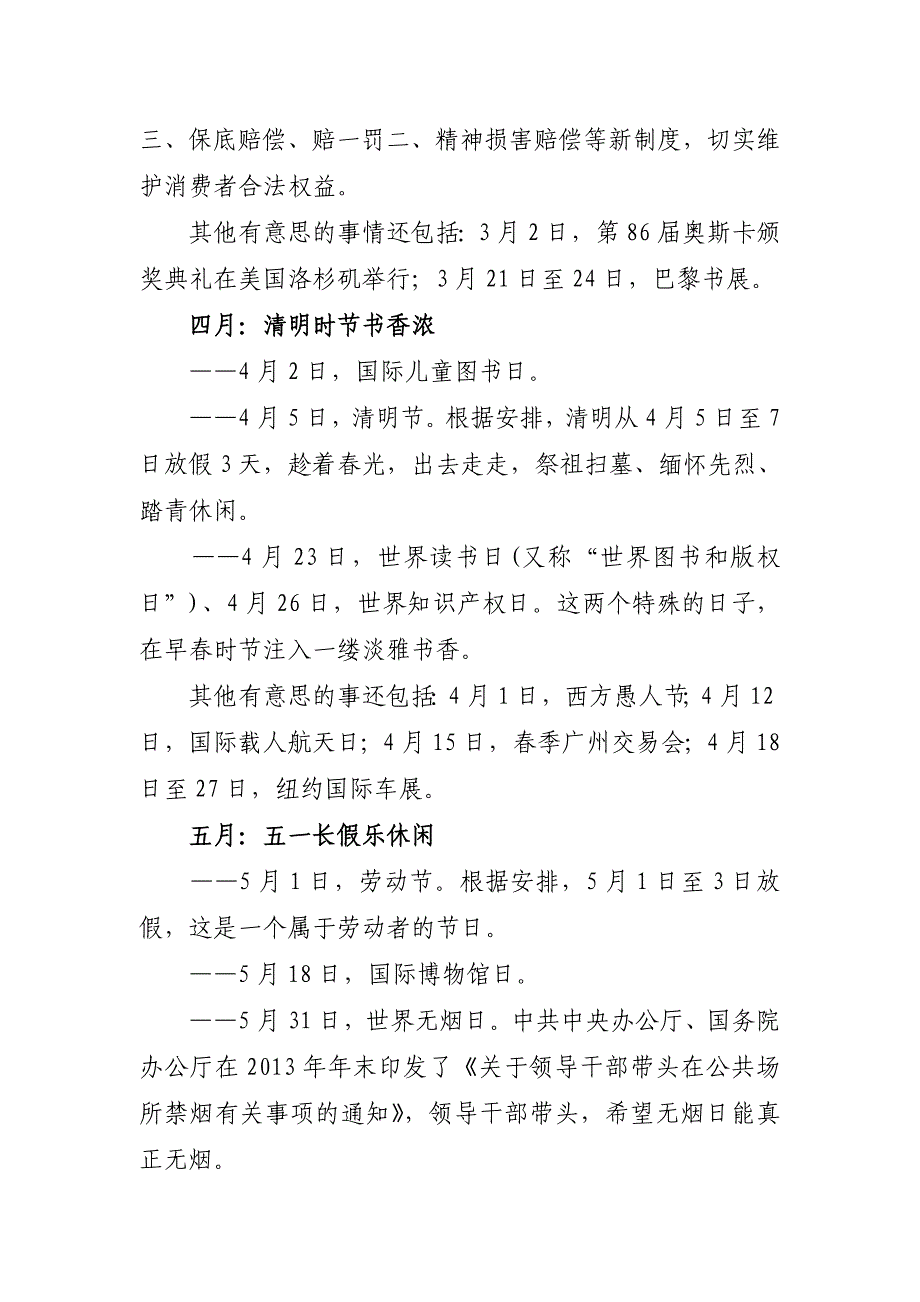 三、保底赔偿、赔一罚二、精神损害赔偿等新制度，切实维
护消费者合法权益。
其他有意思的事情还包括：3 月 2 日，第 86 届奥斯卡颁
奖典礼在美国洛杉矶举行；3 月 21 日至 24 日，巴黎书展。
四月：清明时节书香浓
——4 月 2 日，国际儿童图书日。
——4 月 5 日，清明节。根据安排，清明从 4 月 5 日至 7
日放假 3 天，趁着春光，出去走走，祭祖扫墓、缅怀先烈、
踏青休闲。
——4 月 23 日，世界读书日(又称“世界图书和版权
日”)、4 月 26 日，世界知识产权日。这两个特殊的日子，
在早春时节注入一缕淡雅书香。
其他有意思的事还包括：4 月 1 日，西方愚人节；4 月 12
日，国际载人航天日；4 月 15 日，春季广州交易会；4 月 18
日至 27 日，纽约国际车展。
五月：五一长假乐休闲
——5 月 1 日，劳动节。根据安排，5 月 1 日至 3 日放
假，这是一个属于劳动者的节日。
——5 月 18 日，国际博物馆日。
——5 月 31 日，世界无烟日。中共中央办公厅、国务院
办公厅在 2013 年年末印发了《关于领导干部带头在公共场
所禁烟有关事项的通知》，领导干部带头，希望无烟日能真
正无烟。